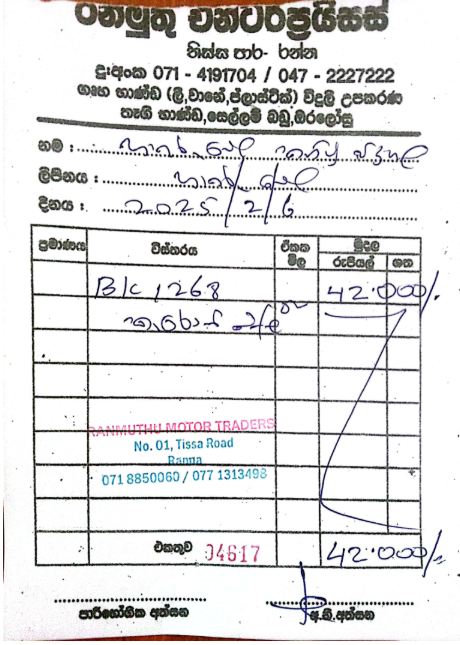 රන්මුතු එන්ටර්ප්‍රයිසස්
තිස්ස පාර- රන්න
දු:අංක 071 - 4191704 / 047 - 2227222
ගෘහ භාණ්ඩ (ලී,වානේ,ප්ලාස්ටික්) විදුලි උපකරණ
තෑගි භාණ්ඩ,සෙල්ලම් බඩු,ඔරලෝසු
නම :
ලිපිනය :
දිනය : 2025/2/6
ප්‍රමාණය විස්තරය ඒකක මිල මුදල
රුපියල් ශත
BK 1268 42.000/-
RANMUTHU MOTOR TRADERS
No. 01, Tissa Road
Ranna
071 8850060 / 077 1313498
එකතුව 04617 42.000/-
පාරිභෝගික අත්සන අ.බි.අත්සන